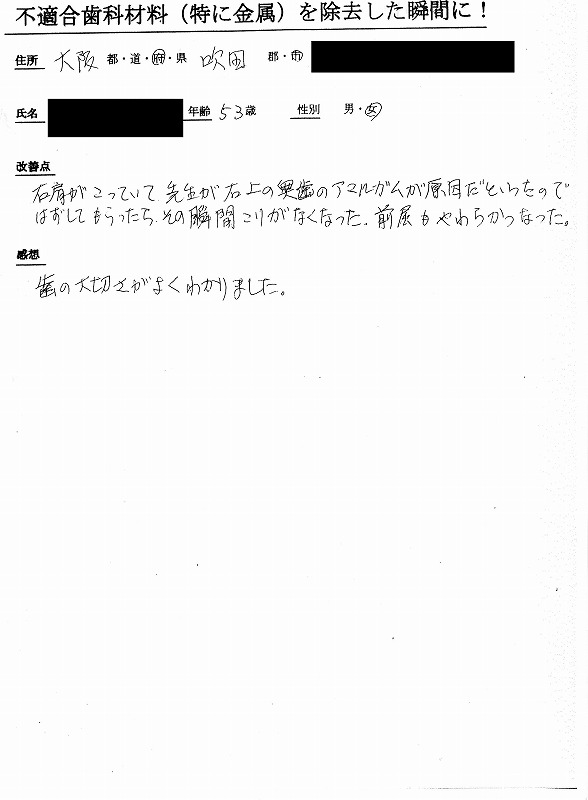 不適合歯科材料（特に金属）を除去した瞬間に！
住所 大阪 都・道・府・県 吹田 郡・市
氏名 年齢 53歳 性別 男・女
改善点
右肩がこっていて 先生が右上の奥歯のアマルガムが原因だといったので
はずしてもらったら、その瞬間こりがなくなった。前屈もやわらかくなった。
感想
歯の大切さがよくわかりました。